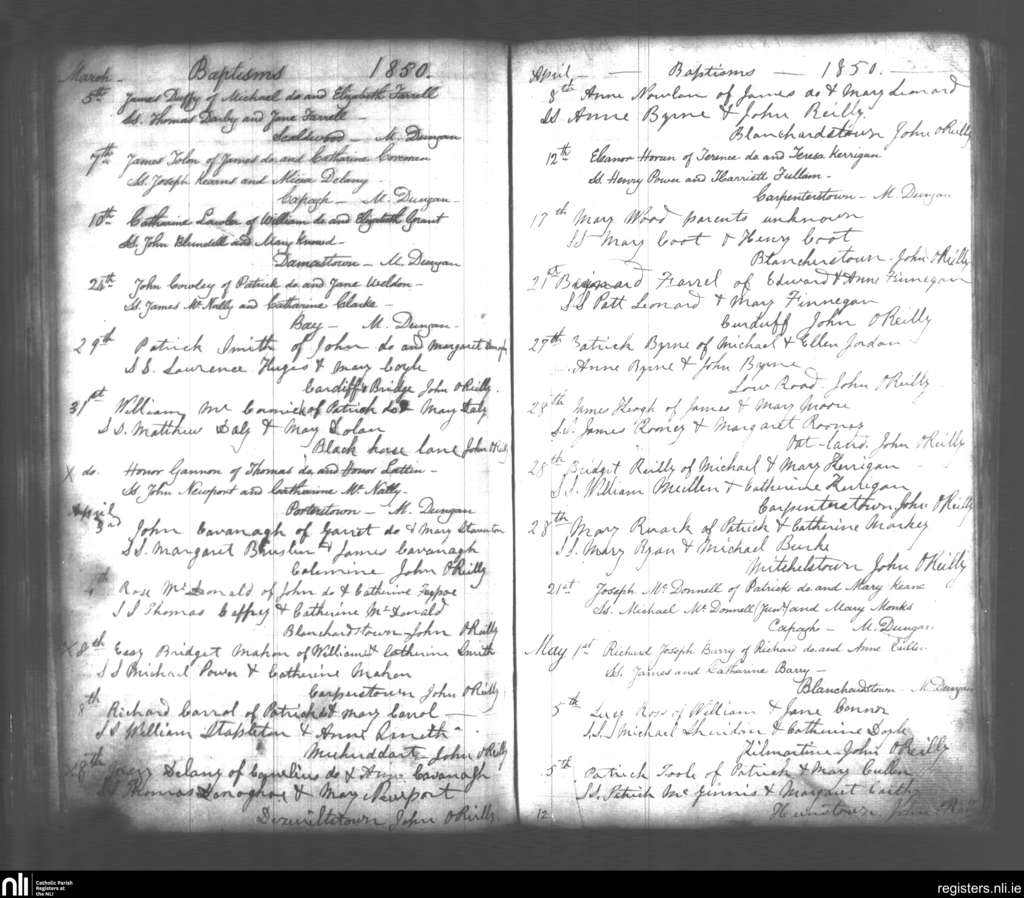 March - Baptisms 1850.
5th James Duffy of Michael do and Elizabeth Farrell
Ss. Thomas Darby and Jane Farrell -
Scaldwood - M. Dungan
7th James Tolon of James do and Catharine Coreman
Ss. Joseph Kearns and Alicia Delany -
Capagh - M. Dungan -
10th Catharine Lawler of William do and Elizabeth Grant
Ss. John Blundell and Mary
Damastown - M. Dungan
24th John Cowley of Patrick do and Jane Weldon -
Ss. James Mc Nally and Catharine Clarke -
Bay - M. Dungan -
29th Patrick Smith of John do and Margaret
S S. Lawrence Huges & Mary Coyle
Cardiff's Bridge John O'Reilly.
31st William Mc Cormick of Patrick do & Mary Daly
S S. Matthew Daly & May Dolan
Black horse lane John O'Reilly
X do. Honor Gannon of Thomas do and Honor Latten -
Ss. John Newport and Catharine Mc Nally.
Porterstown - M. Dungan
April
3rd John Cavanagh of Garret do & Mary Staunton
S S. Margaret & James Cavanagh
Colemine John O'Reilly
4th Rose McDonald of John do & Catherine
S S Thomas Caffrey & Catherine McDonald
Blanchardstown John O'Reilly
X 8th Easy Bridget Mahon of William & Catherine Smith
S S Michael Power & Catherine Mahon
Carpinstown John O'Reilly
8th Richard Carrol of Patrick & Mary Carrol
S S William Stapleton & Anne Smeth
John O'Reilly
X 8th Delany of Cornelius do & Anne Cavanagh
S S Thomas Donoghoe & Mary Newport
John O'Reilly
April - Baptisms - 1850. -
8th Anne Nowlan of James do & Mary Leonard
S S Anne Byrne & John Reilly
Blanchardstown John O'Reilly
12th Eleanor Horan of Terence do and Teresa Kerrigan
Ss. Henry Power and Harriett Fullam -
Carpenterstown - M. Dungan
17th Mary Wood parents unknown
S S Mary Coot & Henry Coot
Blancherstown. John O'Reilly
21st Bernard Farrel of Edward & Anne Finnegan
S S Patt Leonard & Mary Finnegan
Curduff John O'Reilly
27th Patrick Byrne of Michael & Ellen Jordan
Anne Byrne & John Byrne
Low Road. John O'Reilly
28th James Keogh of James & Mary Moore
S S. James Rooney & Margaret Rooney
John O'Reilly
28th Bridget Reilly of Michael & Mary Kerrigan
S S. William Mullen & Catherine Kerrigan
Carpenterstown John O'Reilly
28th Mary Ruark of Patrick & Catherine Markey
S S. Mary Ryan & Michael Burke
Mitchelstown John O'Reilly
21st Joseph Mc Donnell of Patrick do and Mary Keane
Ss. Michael Mc Donnell (Junr) and Mary Monks
Capagh - M. Dungan.
May 1st Richard Joseph Barry of Richard do and Anne Cullen
Ss. James and Catharine Barry -
Blanchardstown - M Dungan
5th Lucy Ross of William & Jane Connor
S S. Michael Sheridan & Catherine Doyle
Kilmartin John O'Reilly
5th Patrick Toole of Patrick & Mary Cullen
S S. Patrick Mc Ginnis & Margaret
Huntstown. John O'Reilly
12
nli Catholic Parish
Registers at
the NLI
registers.nli.ie